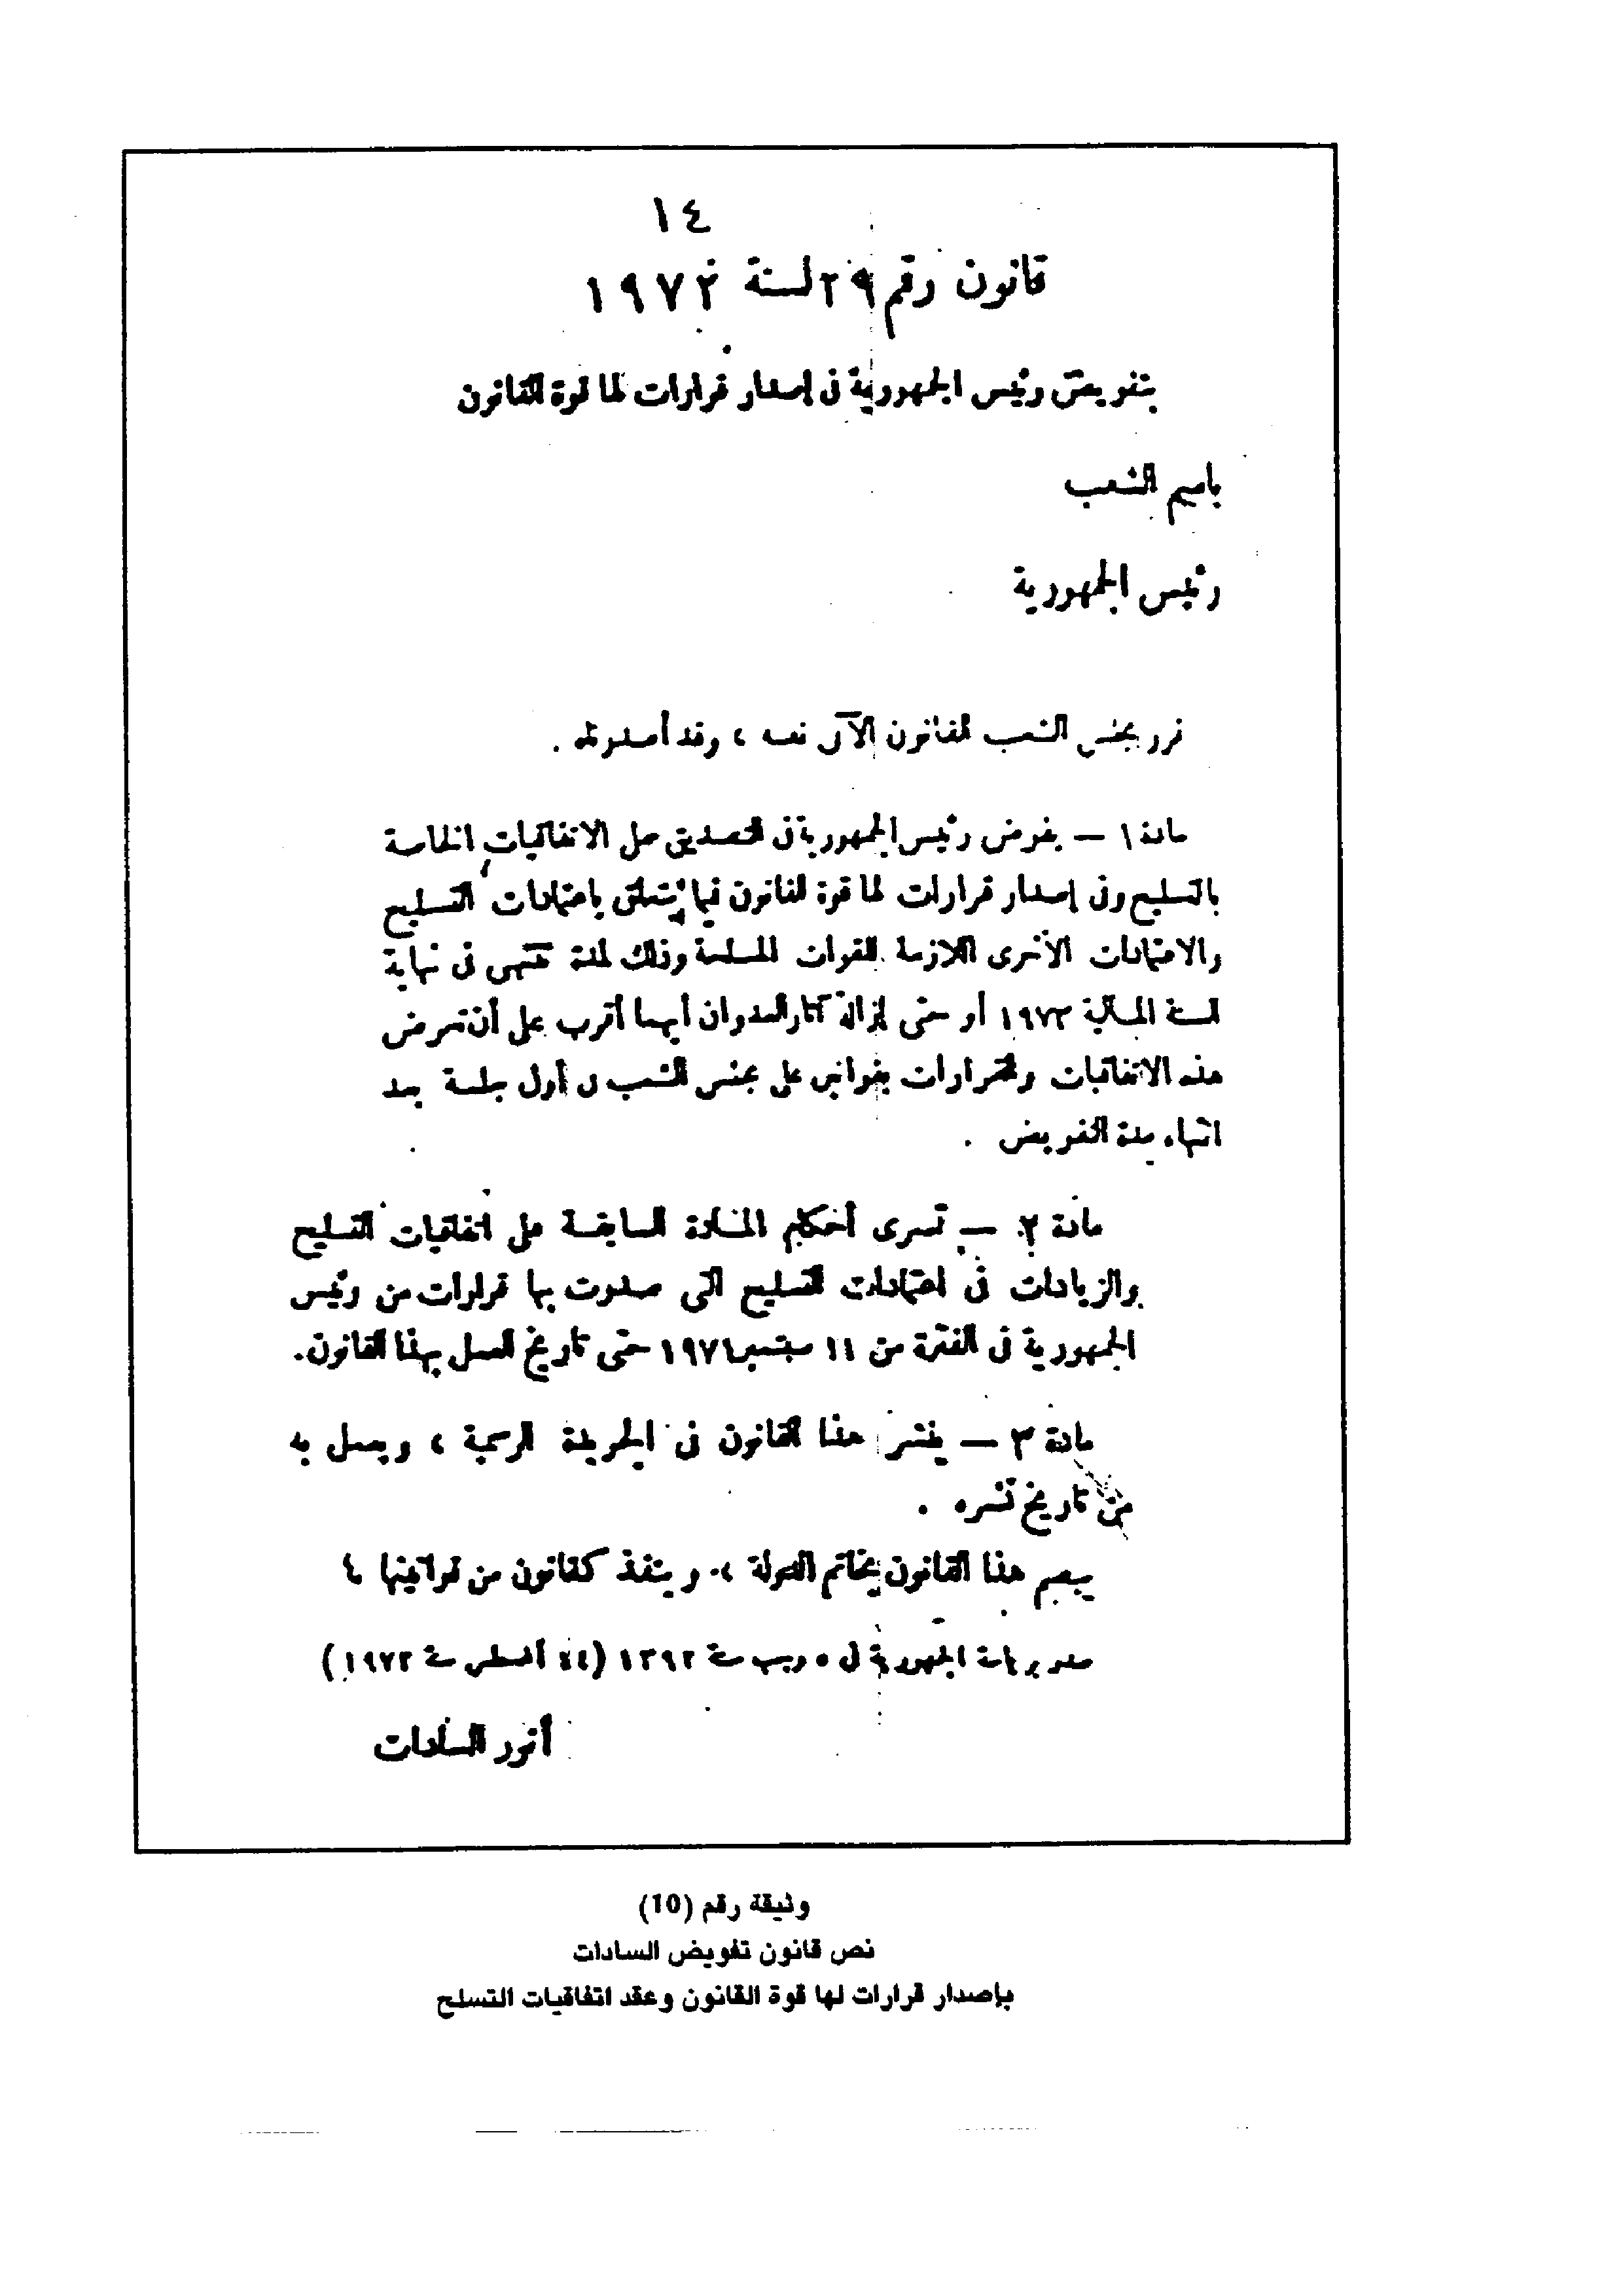 ١٤
قانون رقم ٢٩ لسنة ١٩٧٢
بتفويض رئيس الجمهورية فى إصدار قرارات لها قوة القانون
باسم الشعب
رئيس الجمهورية
قرر مجلس الشعب القانون الآتى نصه ، وقد أصدرناه .
مادة ١ — يفوض رئيس الجمهورية فى التصديق على الاتفاقيات الخاصة
بالتسليح وفى إصدار قرارات لها قوة القانون فيما يتعلق باعتمادات التسليح
والاعتمادات الأخرى اللازمة للقوات المسلحة وذلك لمدة تنتهى فى نهاية
السنة المالية ١٩٧٣ أو حتى إزالة آثار العدوان أيهما أقرب على أن تعرض
هذه الاتفاقيات والقرارات بقوانين على مجلس الشعب فى أول جلسة بعد
انتهاء مدة التفويض .
مادة ٢ — تسرى أحكام المادة السابقة على اتفاقيات التسليح
والزيادات فى اعتمادات التسليح التى صدرت بها قرارات من رئيس
الجمهورية فى الفترة من ١١ سبتمبر ١٩٧١ حتى تاريخ العمل بهذا القانون.
مادة ٣ — ينشر هذا القانون فى الجريدة الرسمية ، ويعمل به
من تاريخ نشره .
يبصم هذا القانون بخاتم الدولة ، وينفذ كقانون من قوانينها
صدر برياسة الجمهورية فى ٥ رجب سنة ١٣٩٢ (١٤ أغسطس سنة ١٩٧٢)
أنور السادات
وثيقة رقم (10)
نص قانون تفويض السادات
بإصدار قرارات لها قوة القانون وعقد اتفاقيات التسلح